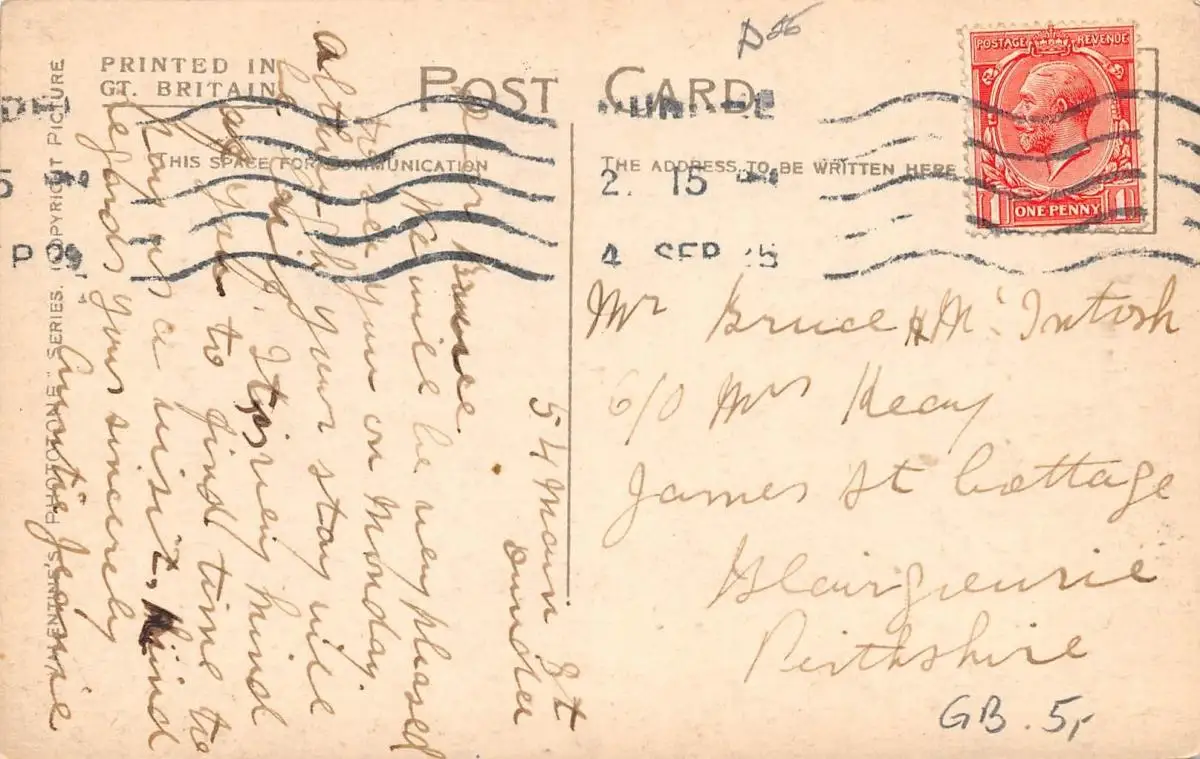 PRINTED IN
GT. BRITAIN
POST CARD
THIS SPACE FOR COMMUNICATION
THE ADDRESS TO BE WRITTEN HERE
VALENTIN'S "PHOTOTONE" SERIES. (COPYRIGHT PICTURE
POSTAGE REVENUE
1 ONE PENNY 1
DUNDEE
2. 15 PM
4 SEP
54 Main St
Dundee
Dear Bruce
We will be very pleased
to see you on Monday
although your stay will
be brief. It is very kind
of you to find time to
pay us a visit, Kind
regards yours sincerely
Auntie Jeannie
Mr Bruce H Mc Intosh
c/o Mrs Keay
James St Cottage
Blairgowrie
Perthshire
GB. 5,-